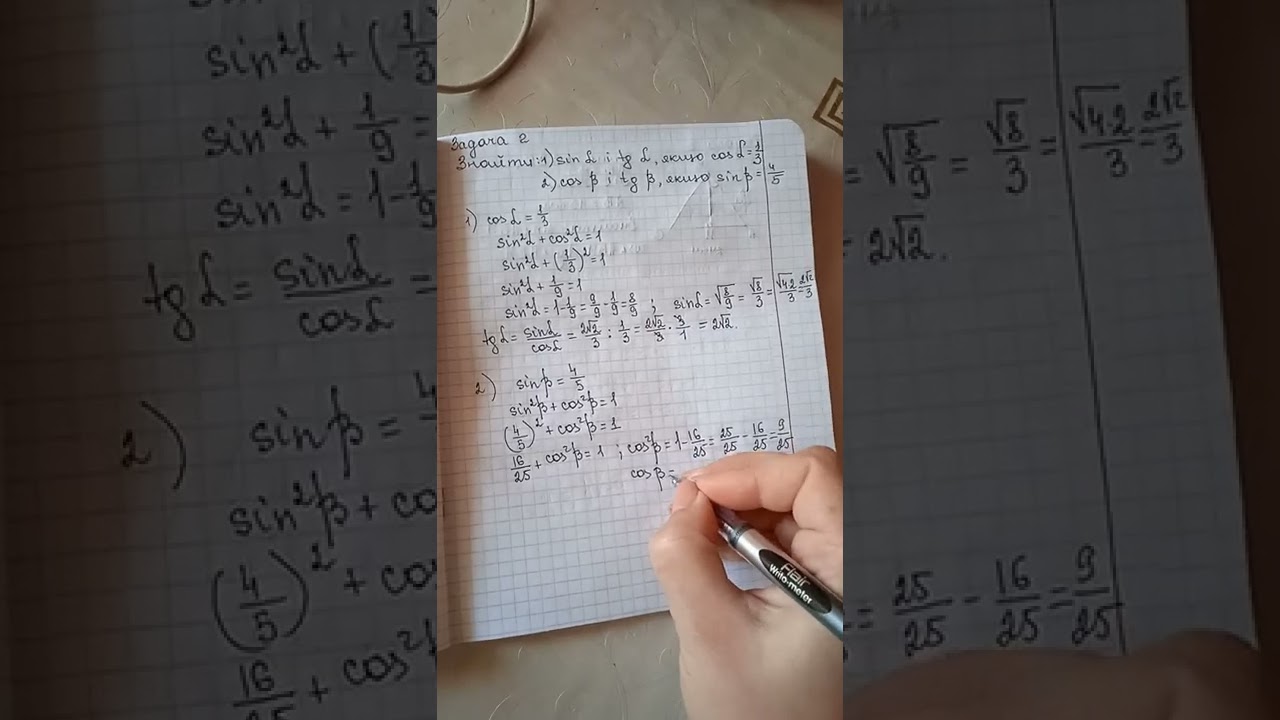 Задача 2
Знайти: 1) sin α і tg α, якщо cos α = 1/3
2) cos β і tg β, якщо sin β = 4/5
1) cos α = 1/3
sin²α + cos²α = 1
sin²α + (1/3)² = 1
sin²α + 1/9 = 1
sin²α = 1 - 1/9 = 9/9 - 1/9 = 8/9 ; sin α = √(8/9) = √8/3 = √(4·2)/3 = 2√2/3
tg α = sin α/cos α = 2√2/3 : 1/3 = 2√2/3 · 3/1 = 2√2.
2) sin β = 4/5
sin²β + cos²β = 1
(4/5)² + cos²β = 1
16/25 + cos²β = 1 ; cos²β = 1 - 16/25 = 25/25 - 16/25 = 9/25
cos β =
Flair
Writo-meter